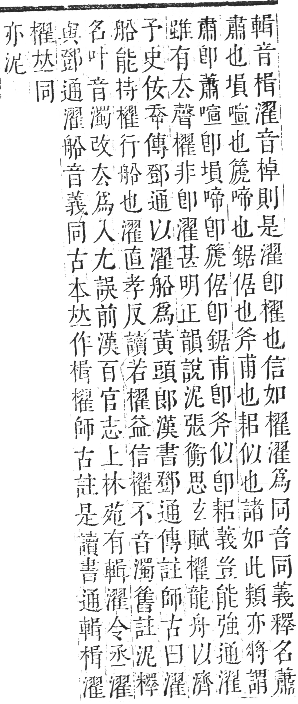 輯音楫濯音棹則是濯卽櫂也信如櫂濯爲同音同義釋名蕭
肅也塤喧也箎啼也鋸倨也斧甫也耜似也諸如此類亦將謂
肅卽蕭喧卽塤啼卽箎倨卽鋸甫卽斧似卽耜義豈能強通濯
雖有厺聲櫂非卽濯甚明正韻說泥張衡思玄賦櫂龍舟以濟
予史佞幸傳鄧通以濯船爲黃頭郎漢書鄧通傳註師古曰濯
船能持櫂行船也濯直孝反讀若櫂益信櫂不音濁舊註泥釋
名叶音濁改厺爲入尤誤前漢百官志上林苑有輯濯令丞濯
與鄧通濯船音義同古本𠀤作楫櫂師古註是讀書通輯楫濯
櫂𠀤同
亦泥